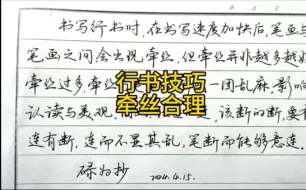 书写行书时,在书写速度加快后,笔画与
笔画之间会出现牵丝,但牵丝并非越多越好
牵丝过多,牵丝
一团乱麻,影响
行书技巧
认读与美观,
该断的断,要有
牵丝合理
连有断,连而不显其乱,笔断而能够意连。
碌为抄 2024.4.15.